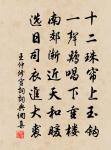 十二珠帘上玉钩
一声鸡唱下重楼
南郊渐近天和暖
选日同衣进大裘
王仲修宫词词典网集